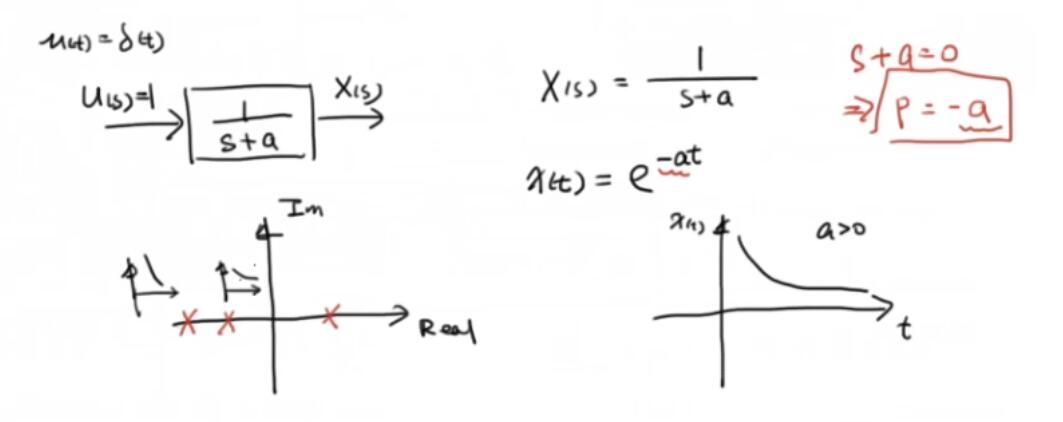 u(t) = δ(t)
U(s)=1
1
s+a
X(s)
X(s) = 1/(s+a)
s+a=0
⇒ P = -a
x(t) = e^{-at}
Im
Real
x(t)
a>0
t